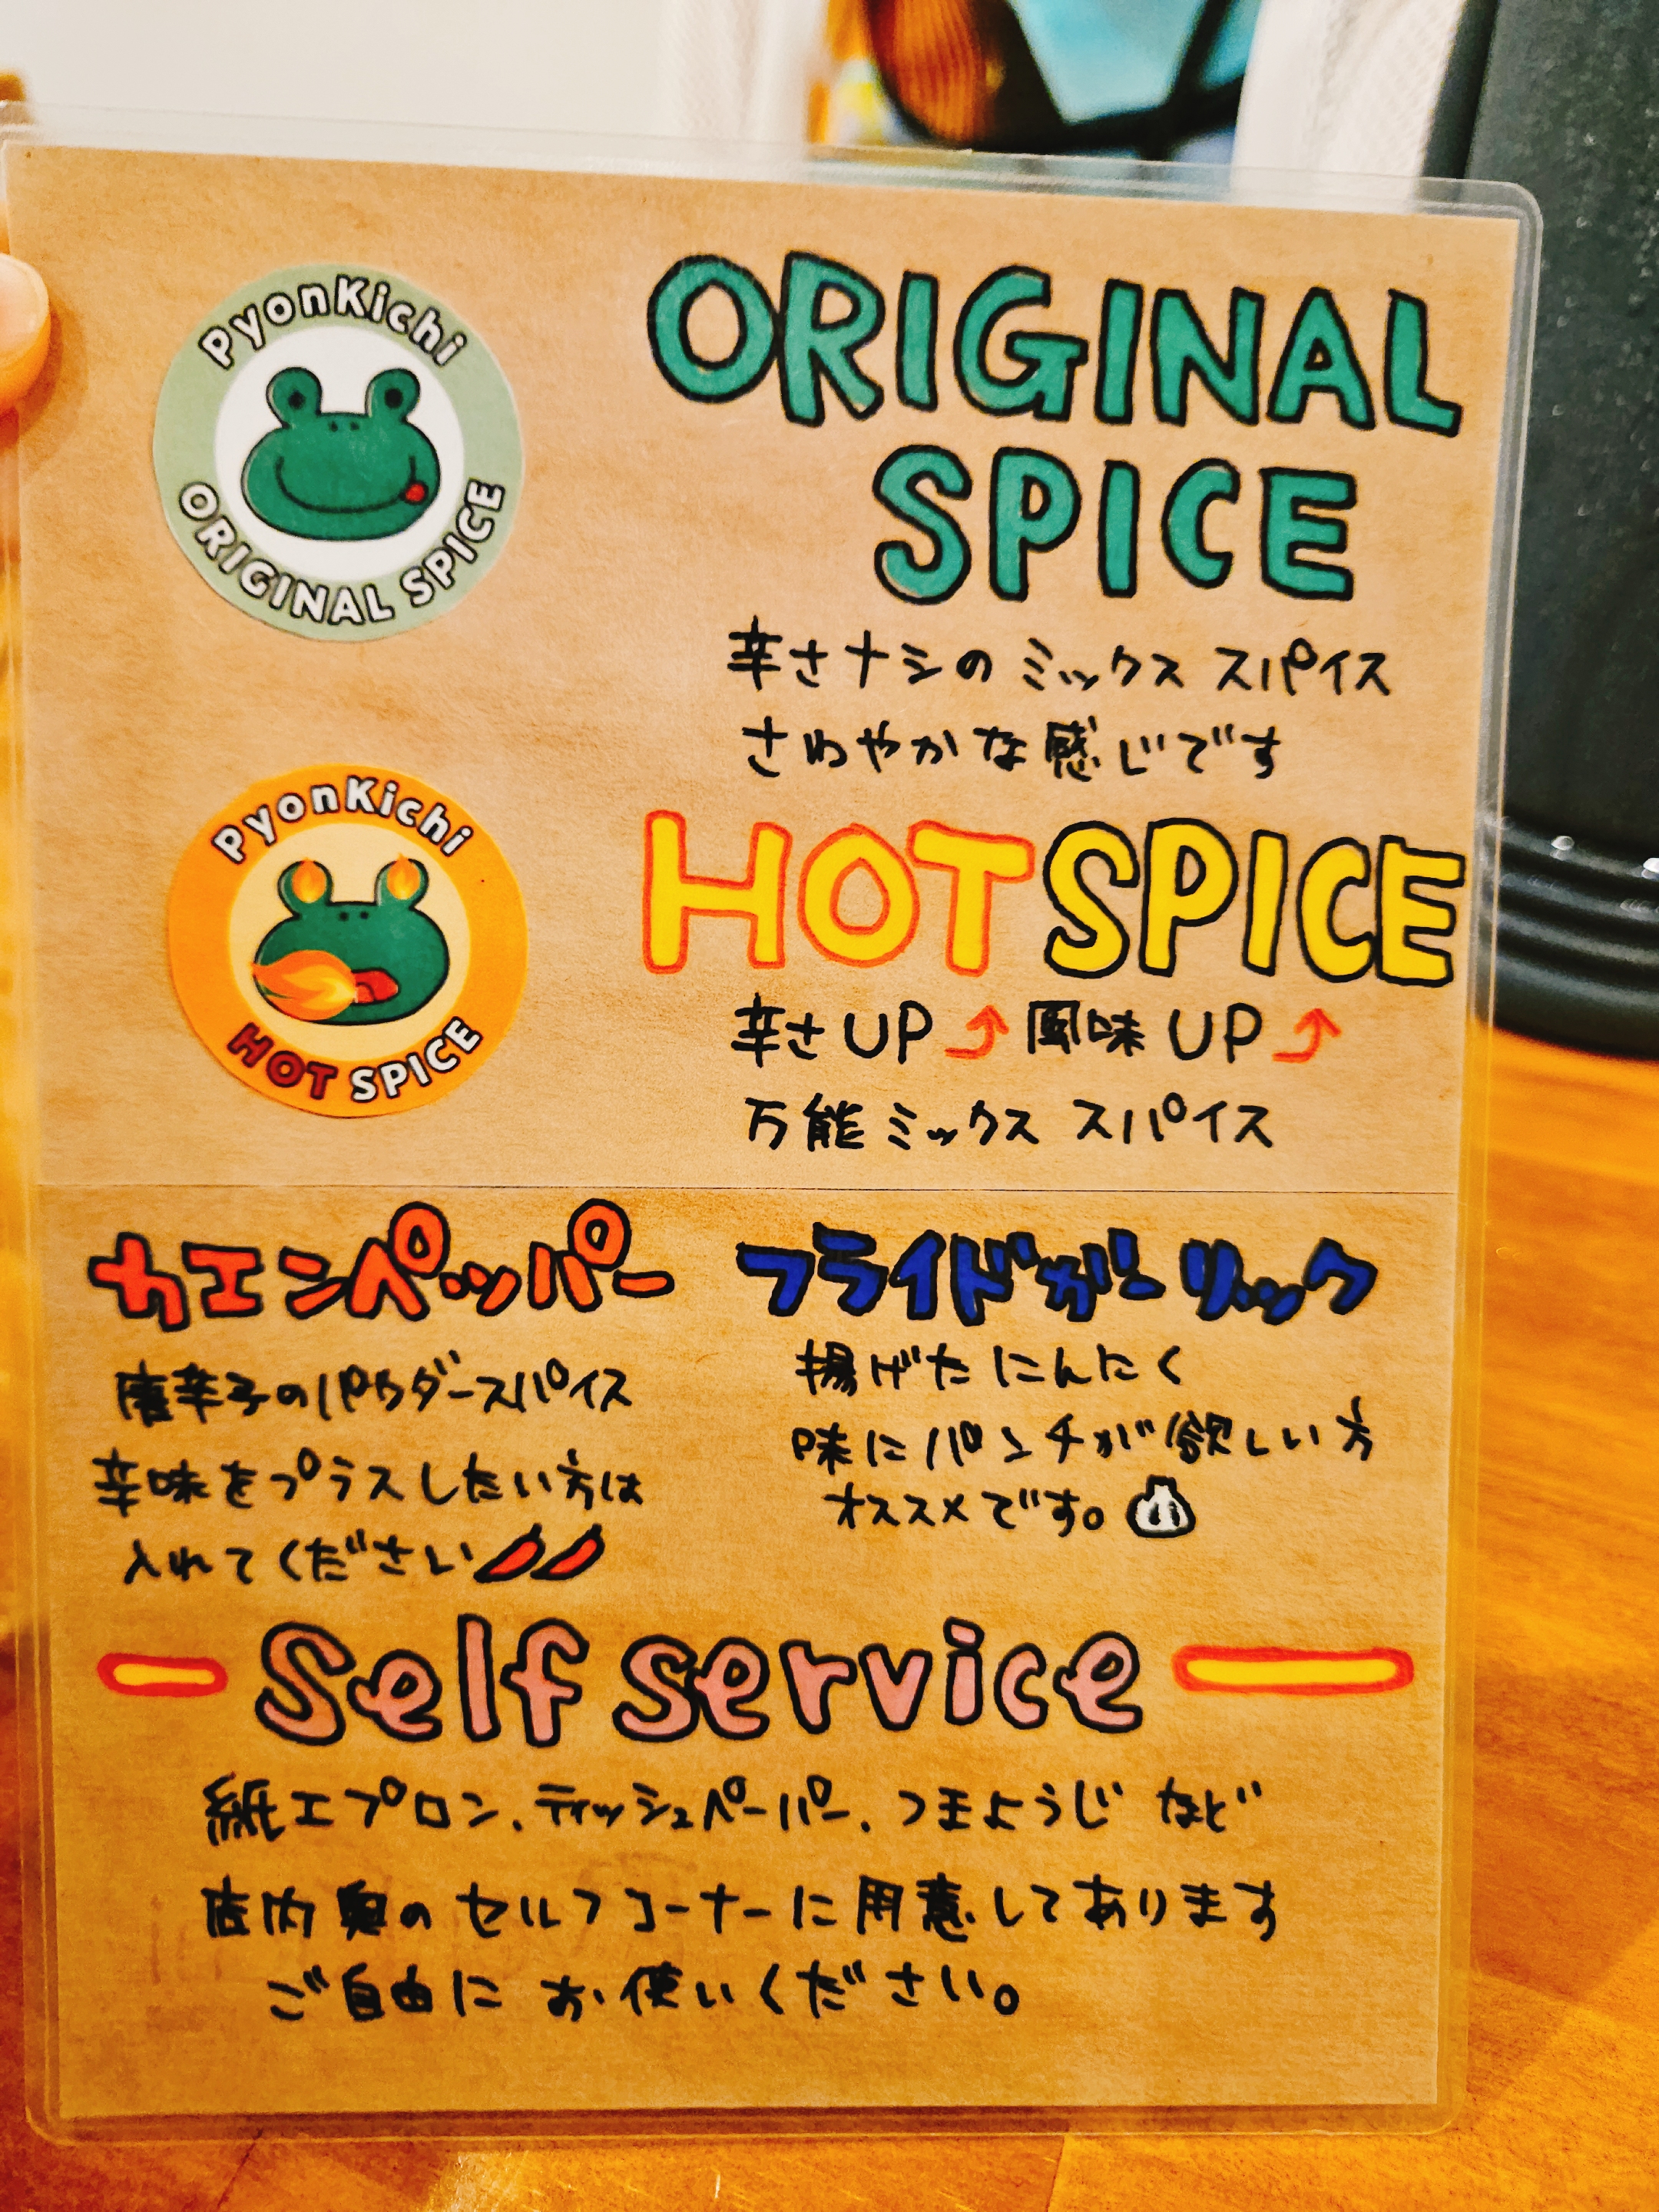 PyonKichi
ORIGINAL SPICE
ORIGINAL
SPICE
辛さナシのミックス スパイス
さわやかな感じです
PyonKichi
HOT SPICE
HOT SPICE
辛さUP⤴風味UP⤴
万能ミックス スパイス
カエンペッパー
唐辛子のパウダースパイス
辛味をプラスしたい方は
入れてください
フライドガーリック
揚げたにんにく
味にパンチが欲しい方
オススメです。
Self service
紙エプロン、ティッシュペーパー、つまようじ など
店内奥のセルフコーナーに用意してあります
ご自由にお使いください。